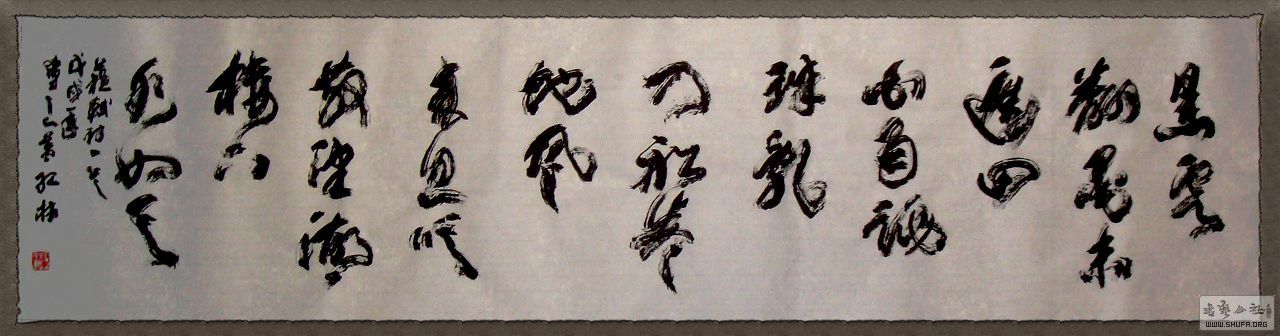 黑雲
翻墨未
遮山
白雨跳
珠亂
入船卷
地風
來忽吹
散望湖
樓下
水如天
蘇軾詩一首
戊戌夏
書藝公社
WWW.SHUFA.ORG